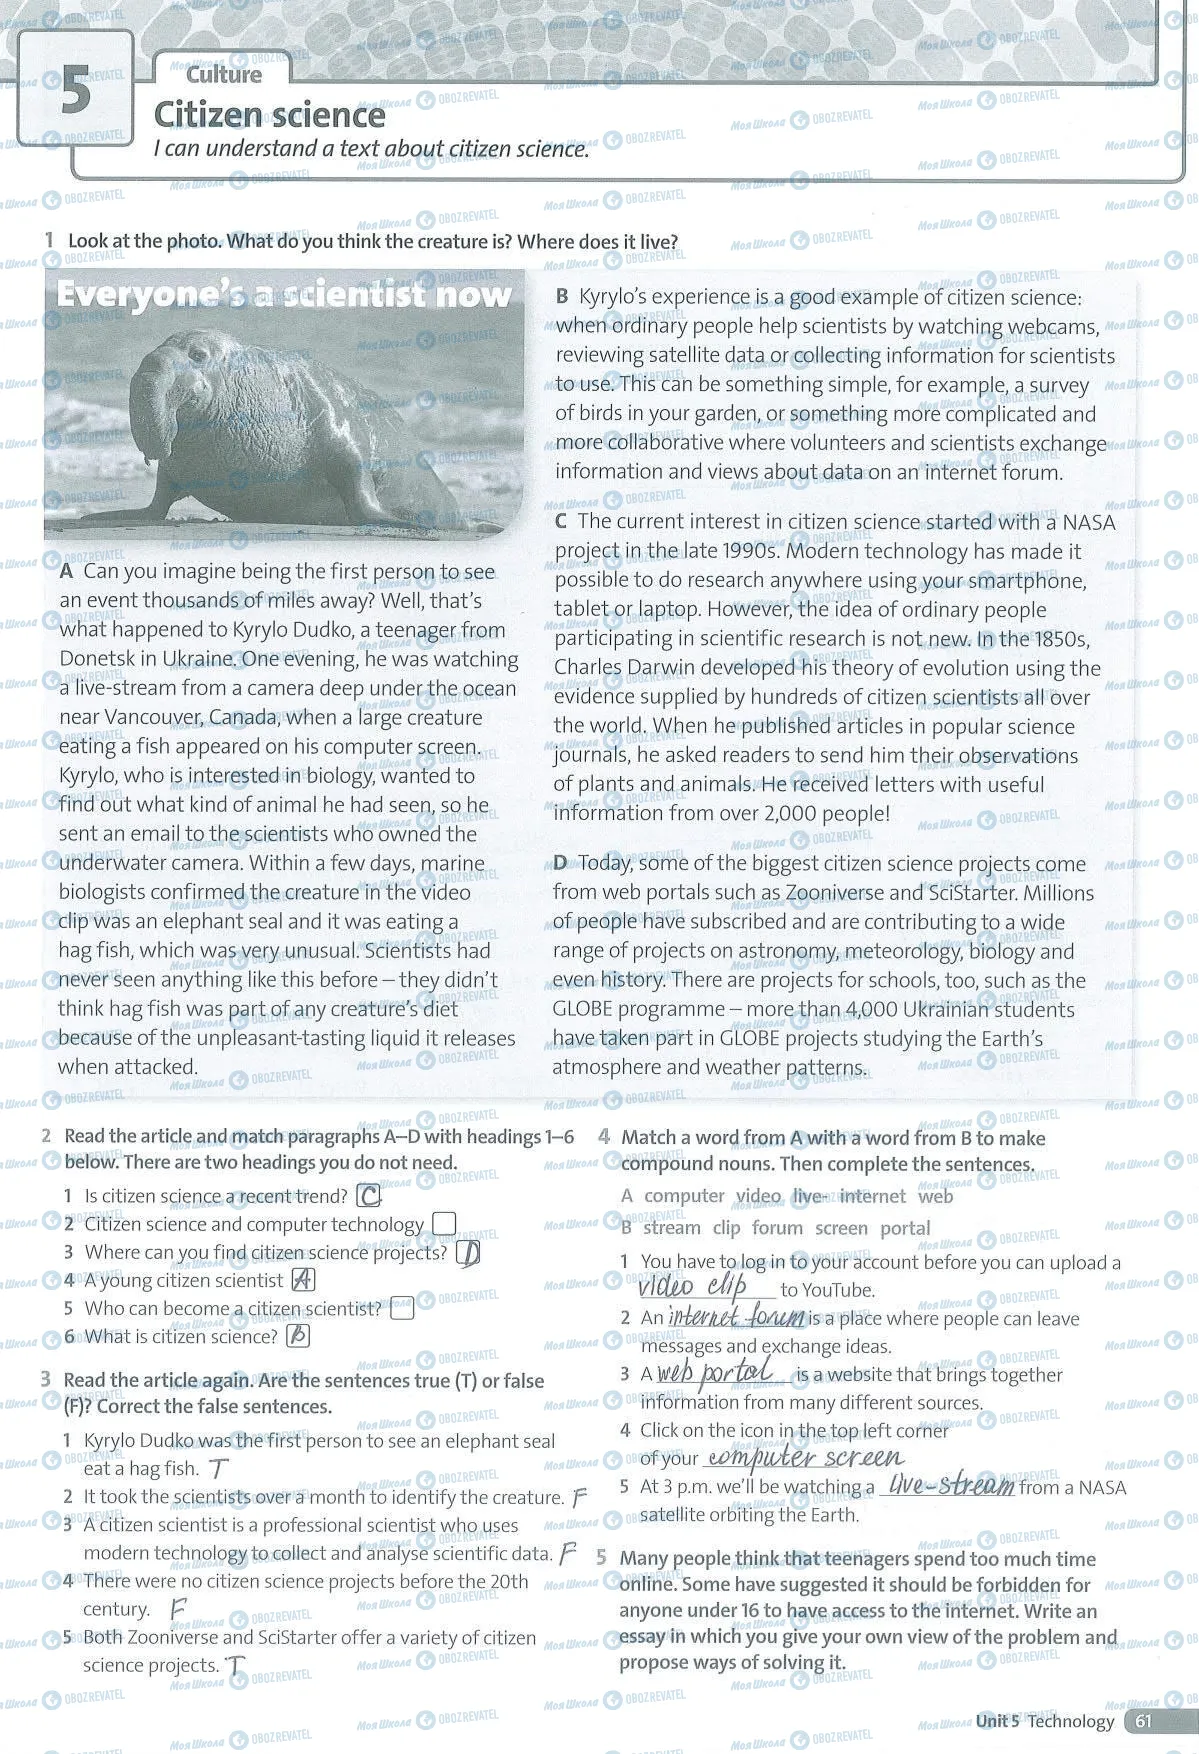 5
Culture
Citizen science
I can understand a text about citizen science.
1 Look at the photo. What do you think the creature is? Where does it live?
Everyone's a scientist now
A Can you imagine being the first person to see
an event thousands of miles away? Well, that's
what happened to Kyrylo Dudko, a teenager from
Donetsk in Ukraine. One evening, he was watching
a live-stream from a camera deep under the ocean
near Vancouver, Canada, when a large creature
eating a fish appeared on his computer screen.
Kyrylo, who is interested in biology, wanted to
find out what kind of animal he had seen, so he
sent an email to the scientists who owned the
underwater camera. Within a few days, marine
biologists confirmed the creature in the video
clip was an elephant seal and it was eating a
hag fish, which was very unusual. Scientists had
never seen anything like this before – they didn't
think hag fish was part of any creature's diet
because of the unpleasant-tasting liquid it releases
when attacked.
B Kyrylo's experience is a good example of citizen science:
when ordinary people help scientists by watching webcams,
reviewing satellite data or collecting information for scientists
to use. This can be something simple, for example, a survey
of birds in your garden, or something more complicated and
more collaborative where volunteers and scientists exchange
information and views about data on an internet forum.
C The current interest in citizen science started with a NASA
project in the late 1990s. Modern technology has made it
possible to do research anywhere using your smartphone,
tablet or laptop. However, the idea of ordinary people
participating in scientific research is not new. In the 1850s,
Charles Darwin developed his theory of evolution using the
evidence supplied by hundreds of citizen scientists all over
the world. When he published articles in popular science
journals, he asked readers to send him their observations
of plants and animals. He received letters with useful
information from over 2,000 people!
D Today, some of the biggest citizen science projects come
from web portals such as Zooniverse and SciStarter. Millions
of people have subscribed and are contributing to a wide
range of projects on astronomy, meteorology, biology and
even history. There are projects for schools, too, such as the
GLOBE programme – more than 4,000 Ukrainian students
have taken part in GLOBE projects studying the Earth's
atmosphere and weather patterns.
2 Read the article and match paragraphs A–D with headings 1–6
below. There are two headings you do not need.
1 Is citizen science a recent trend? C
2 Citizen science and computer technology
3 Where can you find citizen science projects? D
4 A young citizen scientist A
5 Who can become a citizen scientist?
6 What is citizen science? B
3 Read the article again. Are the sentences true (T) or false
(F)? Correct the false sentences.
1 Kyrylo Dudko was the first person to see an elephant seal
eat a hag fish. T
2 It took the scientists over a month to identify the creature. F
3 A citizen scientist is a professional scientist who uses
modern technology to collect and analyse scientific data. F
4 There were no citizen science projects before the 20th
century. F
5 Both Zooniverse and SciStarter offer a variety of citizen
science projects. T
4 Match a word from A with a word from B to make
compound nouns. Then complete the sentences.
A computer video live- internet web
B stream clip forum screen portal
1 You have to log in to your account before you can upload a
video clip to YouTube.
2 An internet forum is a place where people can leave
messages and exchange ideas.
3 A web portal is a website that brings together
information from many different sources.
4 Click on the icon in the top left corner
of your computer screen
5 At 3 p.m. we'll be watching a live-stream from a NASA
satellite orbiting the Earth.
5 Many people think that teenagers spend too much time
online. Some have suggested it should be forbidden for
anyone under 16 to have access to the internet. Write an
essay in which you give your own view of the problem and
propose ways of solving it.
Unit 5 Technology 61
Моя Школа OBOZREVATEL